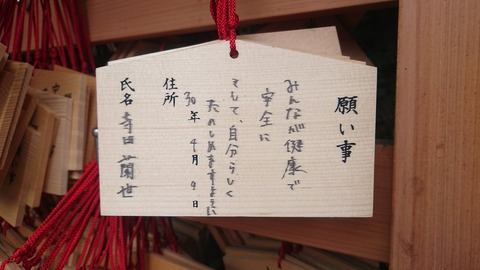 願い事
みんなが健康で
安全に
そして、自分らしく
たのしめますように
住所
30年 4月 9日
氏名 寺田 蘭世